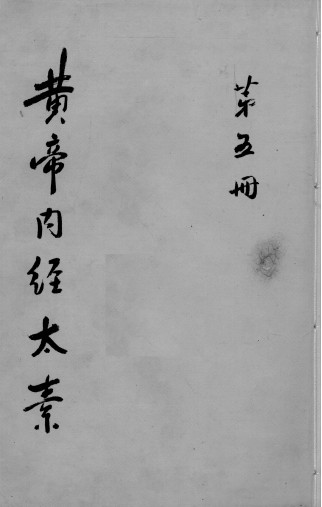 第五冊
黄帝内经太素